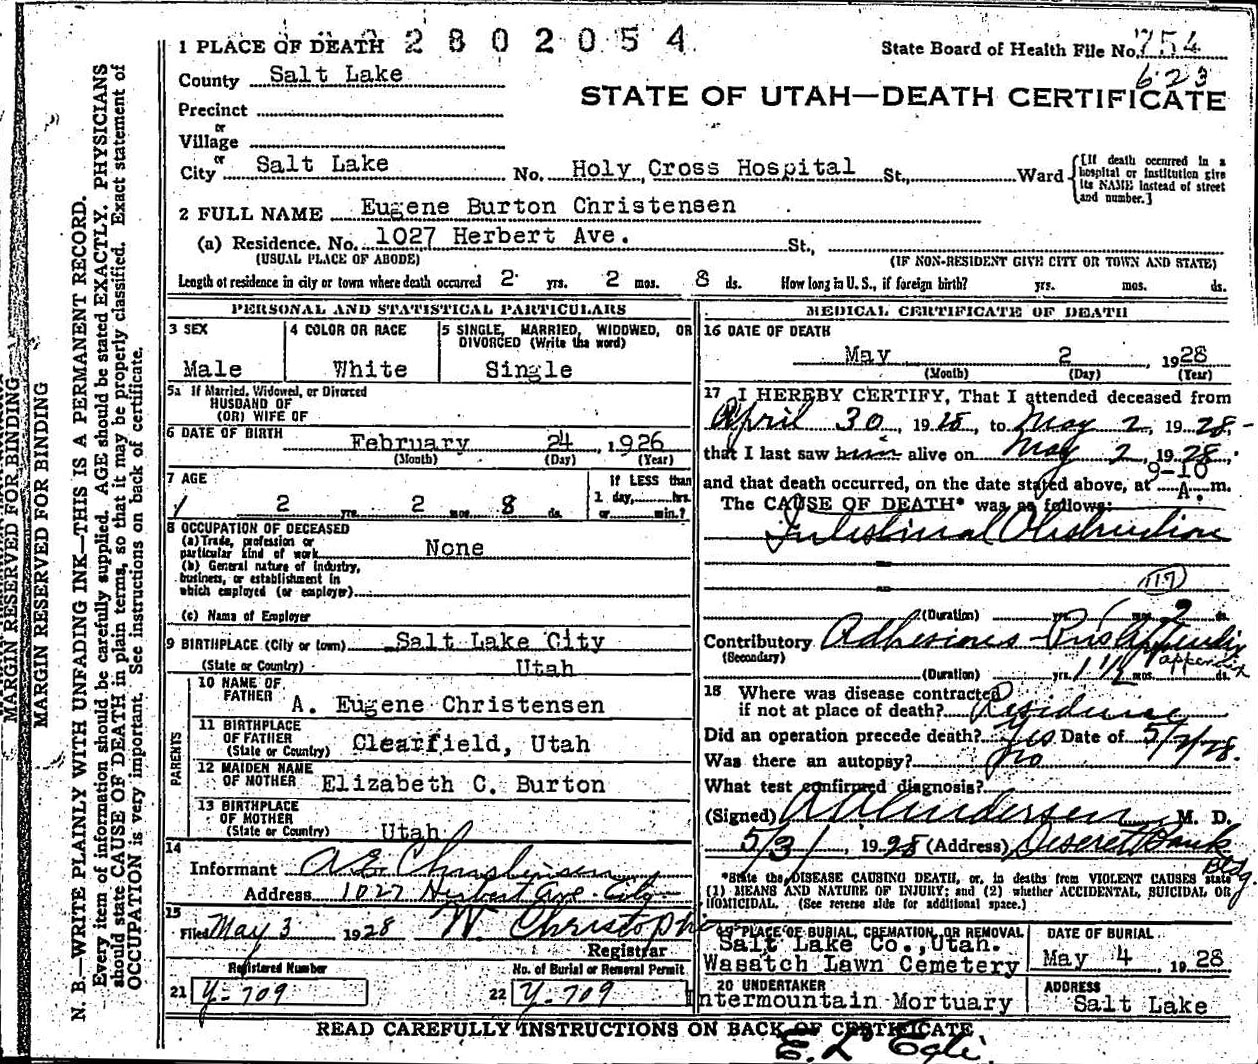 2 8 0 2 0 5 4
1 PLACE OF DEATH
State Board of Health File No. 754
623
County Salt Lake
STATE OF UTAH—DEATH CERTIFICATE
Precinct
or
Village
or
City Salt Lake No. Holy Cross Hospital St., Ward
{[If death occurred in a
hospital or institution give
its NAME instead of street
and number.]
2 FULL NAME Eugene Burton Christensen
(a) Residence. No. 1027 Herbert Ave. St.,
(USUAL PLACE OF ABODE) (IF NON-RESIDENT GIVE CITY OR TOWN AND STATE)
Length of residence in city or town where death occurred 2 yrs. 2 mos. 8 ds. How long in U. S., if foreign birth? yrs. mos. ds.
PERSONAL AND STATISTICAL PARTICULARS
3 SEX
Male
4 COLOR OR RACE
White
5 SINGLE, MARRIED, WIDOWED, OR
DIVORCED (Write the word)
Single
5a If Married, Widowed, or Divorced
HUSBAND OF
(OR) WIFE OF
6 DATE OF BIRTH
February 24, 1926
(Month) (Day) (Year)
7 AGE
2 yrs. 2 mos. 8 ds.
If LESS than
1 day, hrs.
or min.?
8 OCCUPATION OF DECEASED
(a) Trade, profession or
particular kind of work None
(b) General nature of industry,
business, or establishment in
which employed (or employer)
(c) Name of Employer
9 BIRTHPLACE (City or town) Salt Lake City
(State or Country) Utah
PARENTS
10 NAME OF
FATHER A. Eugene Christensen
11 BIRTHPLACE
OF FATHER
(State or Country) Clearfield, Utah
12 MAIDEN NAME
OF MOTHER Elizabeth C. Burton
13 BIRTHPLACE
OF MOTHER
(State or Country) Utah
14
Informant A E Christensen
Address 1027 Herbert Ave. City
15
Filed May 3 1928 W. Christoph
Registrar
Registered Number
21 Y-709
No. of Burial or Removal Permit
22 Y-709
MEDICAL CERTIFICATE OF DEATH
16 DATE OF DEATH
May 2 1928
(Month) (Day) (Year)
17 I HEREBY CERTIFY, That I attended deceased from
April 30, 1928, to May 2, 1928,
that I last saw him alive on May 2, 1928.
and that death occurred, on the date stated above, at 9-10 A. m.
The CAUSE OF DEATH* was as follows:
Intestinal Obstruction
117
(Duration) yrs. mos. 2 ds.
Contributory Adhesions
(Secondary) appendix
(Duration) yrs. 1 1/2 mos. ds.
18 Where was disease contracted
if not at place of death? Residence
Did an operation precede death? Yes Date of 5/2/28.
Was there an autopsy? No
What test confirmed diagnosis?
(Signed) Andersen M. D.
5/3/, 1928 (Address) Deseret Bank
Bldg.
*State the DISEASE CAUSING DEATH, or, in deaths from VIOLENT CAUSES state
(1) MEANS AND NATURE OF INJURY; and (2) whether ACCIDENTAL, SUICIDAL OR
HOMICIDAL. (See reverse side for additional space.)
19 PLACE OF BURIAL, CREMATION, OR REMOVAL
Salt Lake Co., Utah.
Wasatch Lawn Cemetery
DATE OF BURIAL
May 4, 1928
20 UNDERTAKER
Intermountain Mortuary
ADDRESS
Salt Lake
READ CAREFULLY INSTRUCTIONS ON BACK OF CERTIFICATE
E. L. Egli.
MARGIN RESERVED FOR BINDING
MARGIN RESERVED FOR BINDING
N. B.—WRITE PLAINLY WITH UNFADING INK—THIS IS A PERMANENT RECORD.
Every item of information should be carefully supplied. AGE should be stated EXACTLY. PHYSICIANS
should state CAUSE OF DEATH in plain terms, so that it may be properly classified. Exact statement of
OCCUPATION is very important. See instructions on back of certificate.